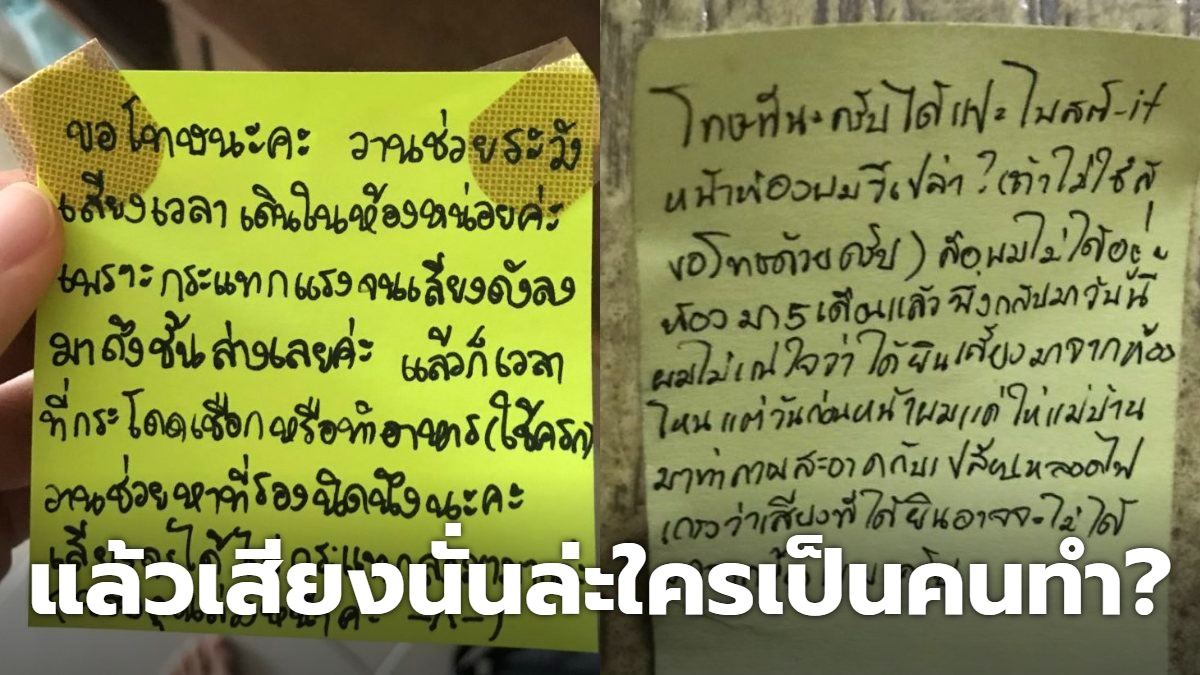 ขอโทษนะคะ วานช่วยระวัง
เสียงเวลาเดินในห้องหน่อยค่ะ
เพราะกระแทกแรงจนเสียงดังลง
มาถึงชั้นล่างเลยค่ะ แล้วก็เวลา
ที่กระโดดเชือกหรือทำอาหาร(ใช้ครก)
วานช่วยหาที่รองนิดนึงนะคะ
โทษทีนะครับได้แปะโพสต์-it
หน้าห้องผมรึเปล่า? (ถ้าไม่ใช่
ขอโทษด้วยครับ) คือผมไม่ได้อยู่
ห้องมา 5 เดือนแล้วพึ่งกลับมาวันนี้
ผมไม่แน่ใจว่าได้ยินเสียงมาจากห้อง
ไหนแต่วันก่อนหน้าผมแค่ให้แม่บ้าน
มาทำความสะอาดกับเปลี่ยนหลอดไฟ
เกรงว่าเสียงที่ได้ยินอาจจะไม่ได้
แล้วเสียงนั่นล่ะใครเป็นคนทำ?